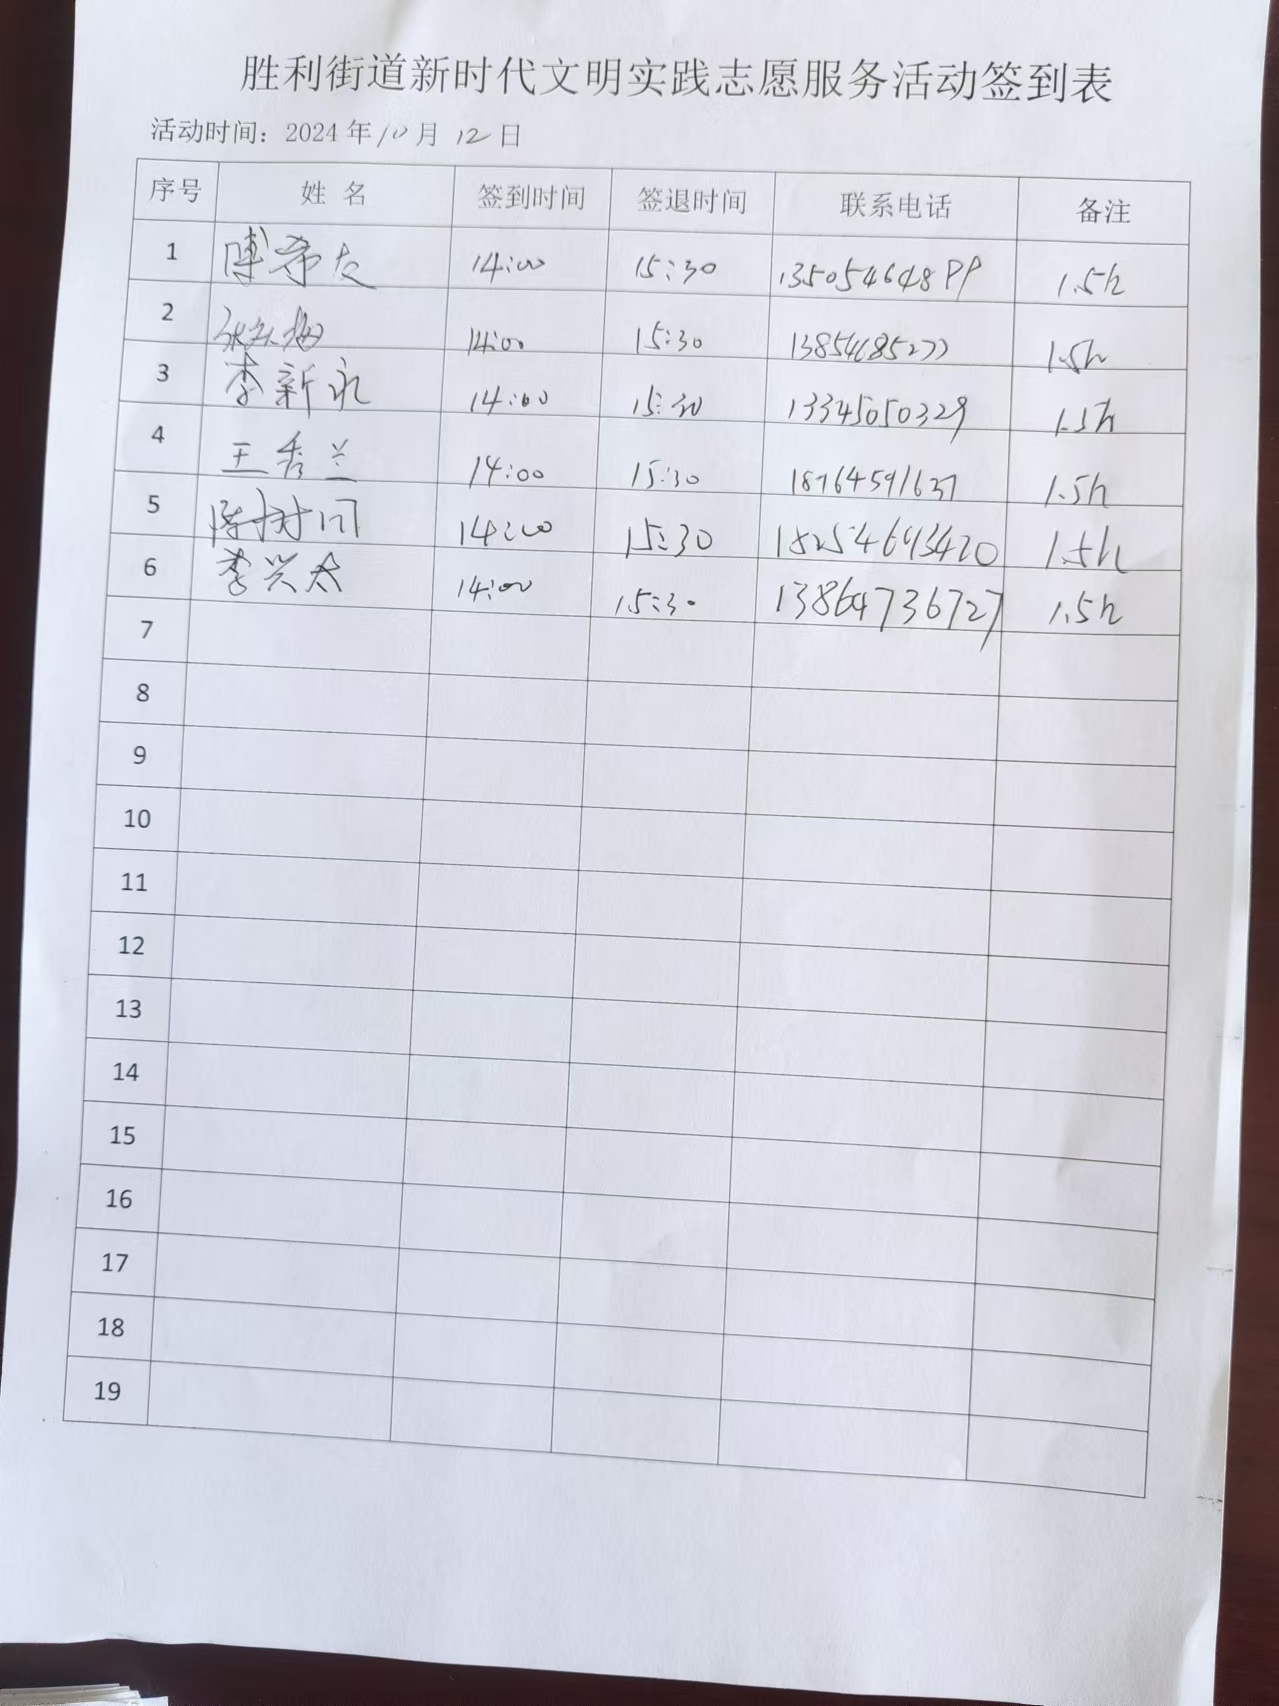 胜利街道新时代文明实践志愿服务活动签到表
活动时间：2024年10月12日
序号 姓 名 签到时间 签退时间 联系电话 备注
1 14:00 15:30 1.5h
2 14:00 15:30 1.5h
3 李新永 14:00 15:30 13345050329 1.5h
4 王秀兰 14:00 15:30 18764591637 1.5h
5 陈树同 14:00 15:30 1.5h
6 李兴太 14:00 15:30 13864736727 1.5h
7
8
9
10
11
12
13
14
15
16
17
18
19